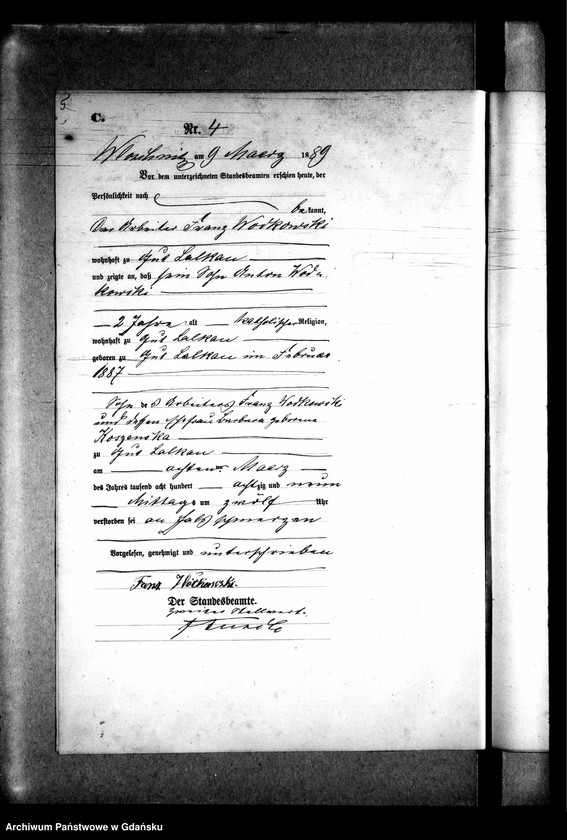 C.
Nr. 4
am 9 Maerz 1889
Vor dem unterzeichneten Standesbeamten erschien heute, der
Persönlichkeit nach
bekannt,
Der Arbeiter Franz Wodkowski
wohnhaft zu Gut Lalkau
und zeigte an, daß sein Sohn Anton Wod-
kowski
2 Jahre alt katholischer Religion,
wohnhaft zu Gut Lalkau
geboren zu Gut Lalkau im Februar
1887
Sohn des Arbeiters Franz Wodkowski
und dessen Ehefrau Barbara geborene
zu Gut Lalkau
am achten Maerz
des Jahres tausend acht hundert achtzig und neun
Mittags um zwölf Uhr
verstorben sei an Halsschmerzen
Vorgelesen, genehmigt und unterschrieben
Franz Wodkowski.
Der Standesbeamte.
Archiwum Państwowe w Gdańsku